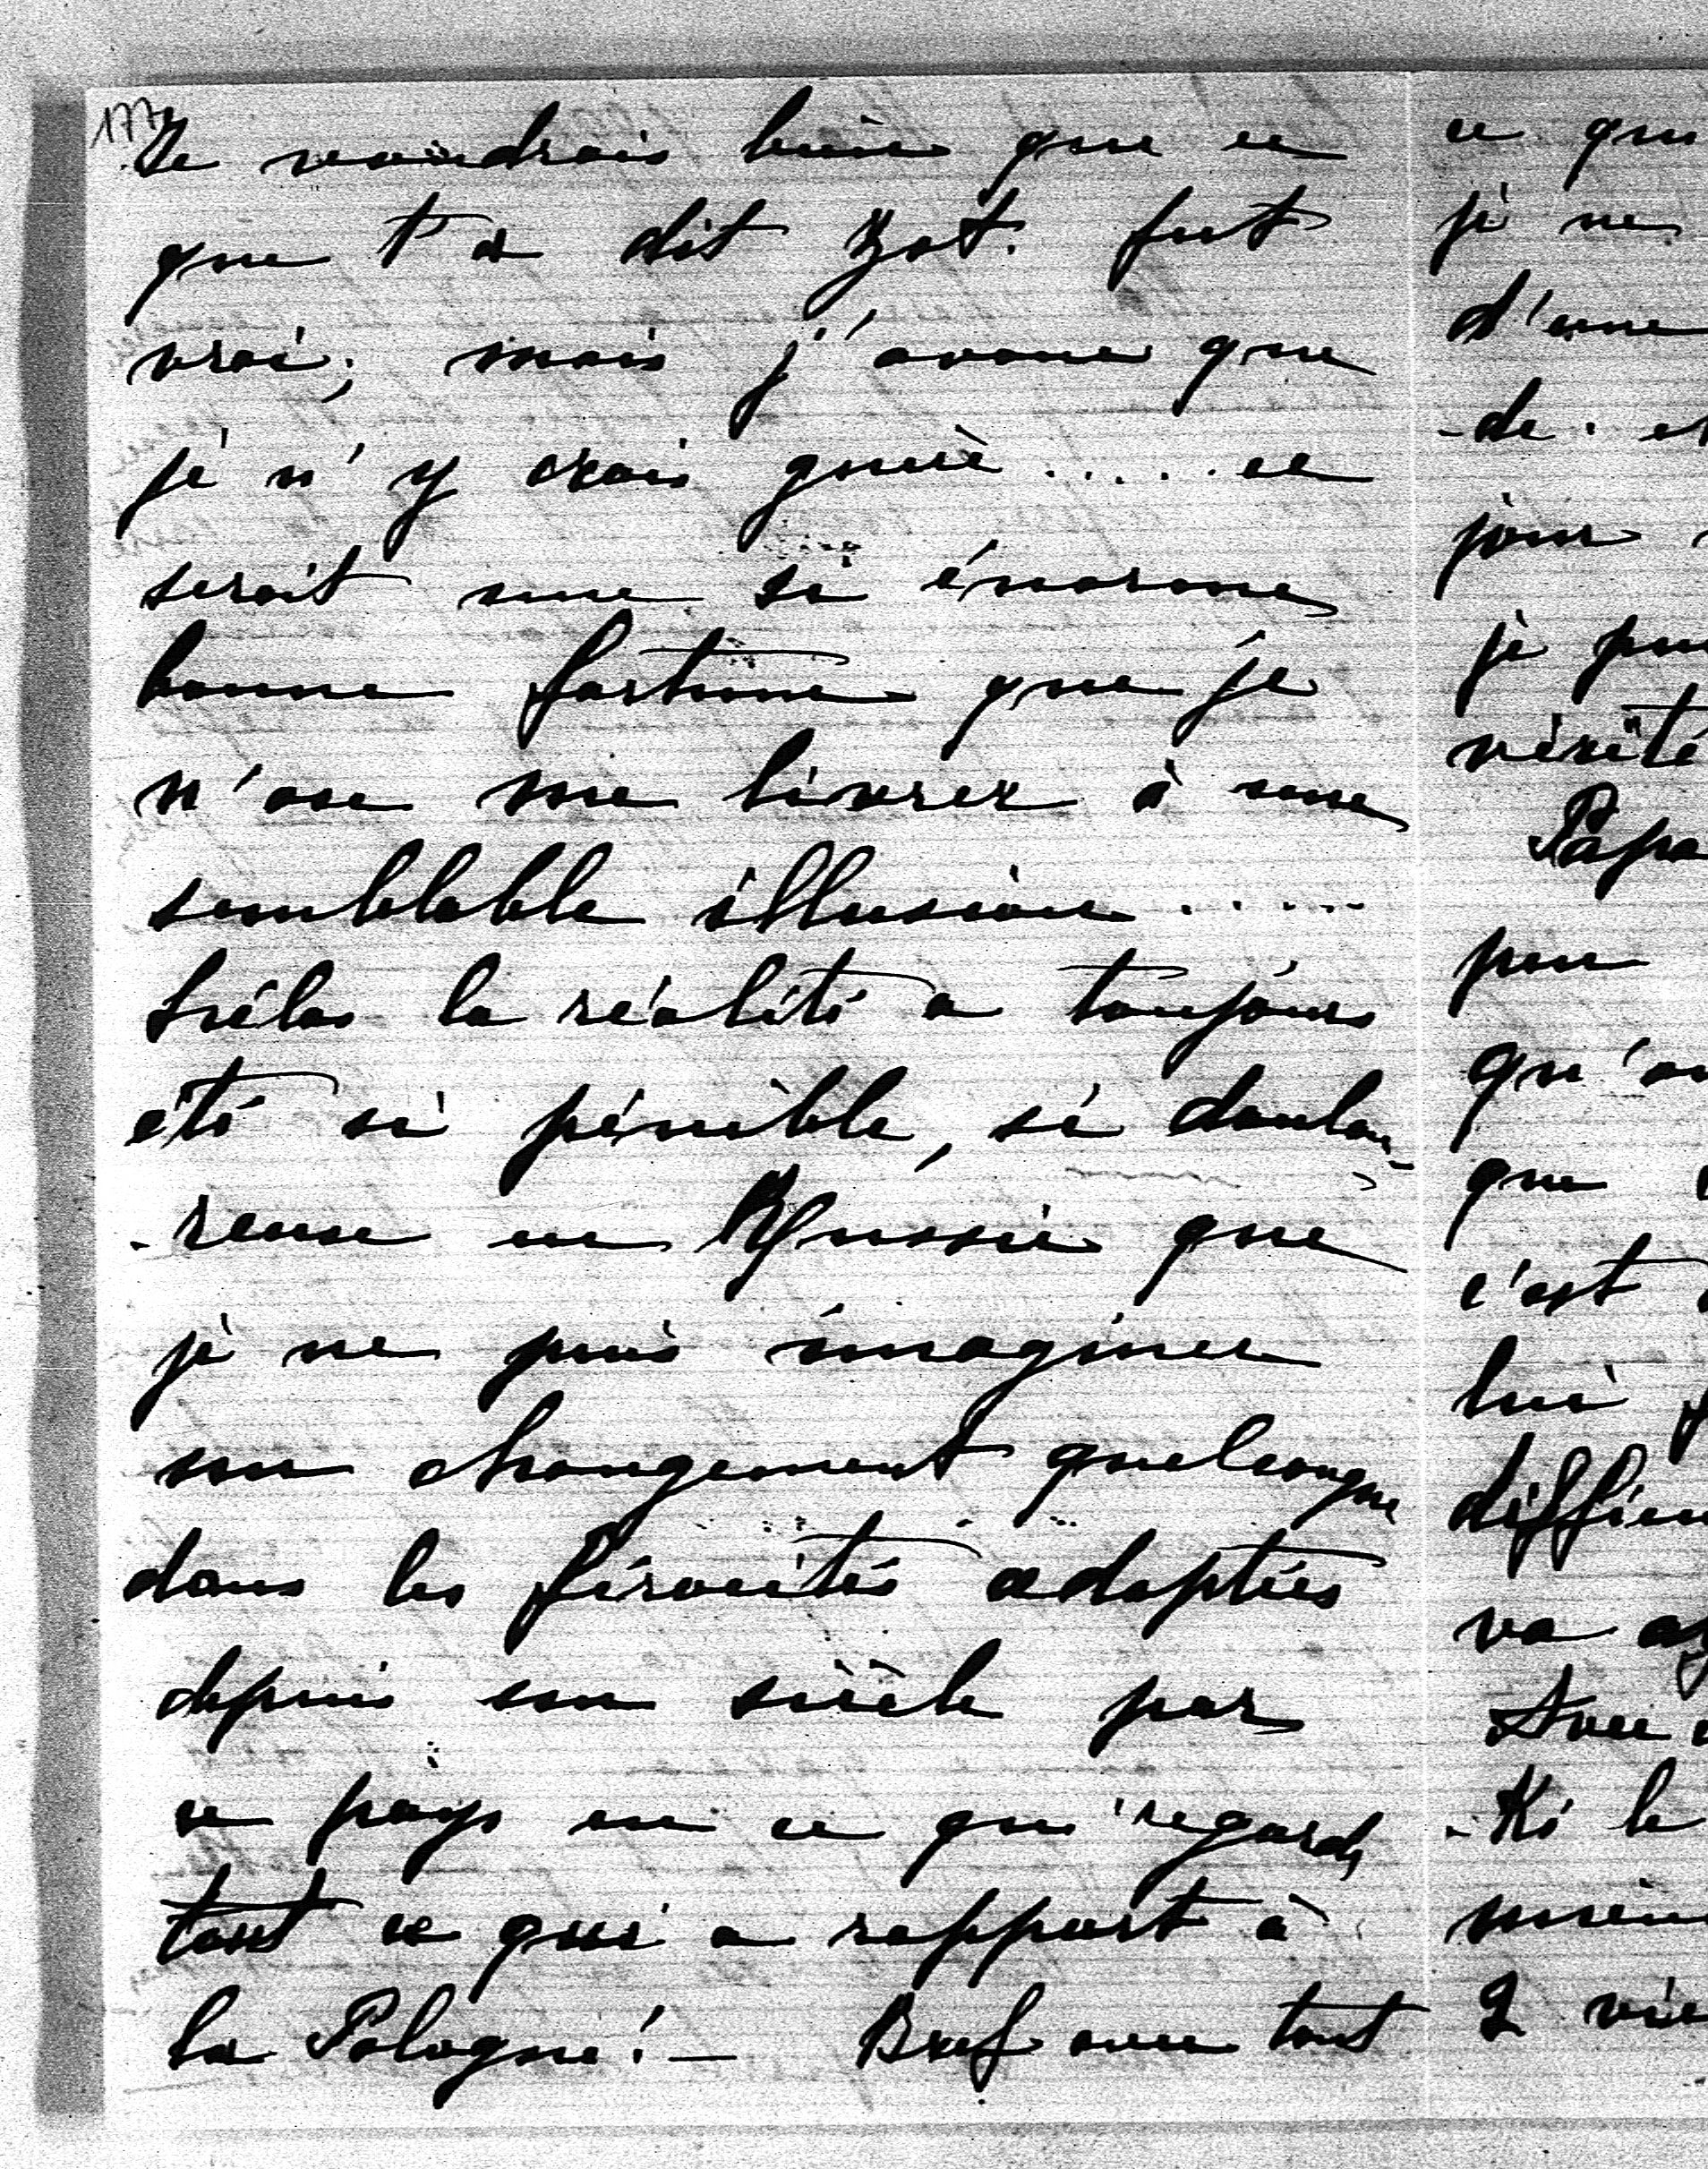 177
Je voudrais bien que ce
que t'a dit Zot. fut
vrai; mais j'avoue que
je n'y crois guère ..... ce
serait une si énorme
bonne fortune que je
n'ose me livrer à une
semblable illusion .....
hélas la réalité a toujours
été si pénible, si doulou-
-reuse en Russie que
je ne puis imaginer
un changement quelconque
dans les férocités adoptées
depuis un siècle par
ce pays en ce qui regarde
tout ce qui a rapport à
la Pologne! — Bref avec tout
ce qu
je ne
d'une
-de. et
jour
je pui
vérité
Papa
peu
qu'on
que
c'est
lui
difficu
va
Avec
-ki le
mieu
2 vie